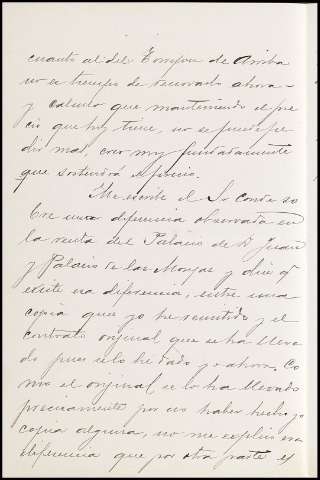 cuanto al del Torrejon de Arriba
no es tiempo de renovarlo ahora
y calculo que manteniendo el pre
cio que hoy tiene, no se puede pe
dir mas, creo muy fundadamente
que sostendrá el precio.
Me escribe el Sr Conde so
bre una diferencia observada en
la renta del Palacio de D Juan
y Palacio de las Monjas y dice q
existe una diferencia, entre una
copia que yo he remitido y el
contrato original que se ha lleva
do pues se lo he dado yo ahora. Co
mo el original se lo ha llevado
precisamente por no haber hecho yo
copia alguna, no me esplico esa
diferencia que por otra parte es